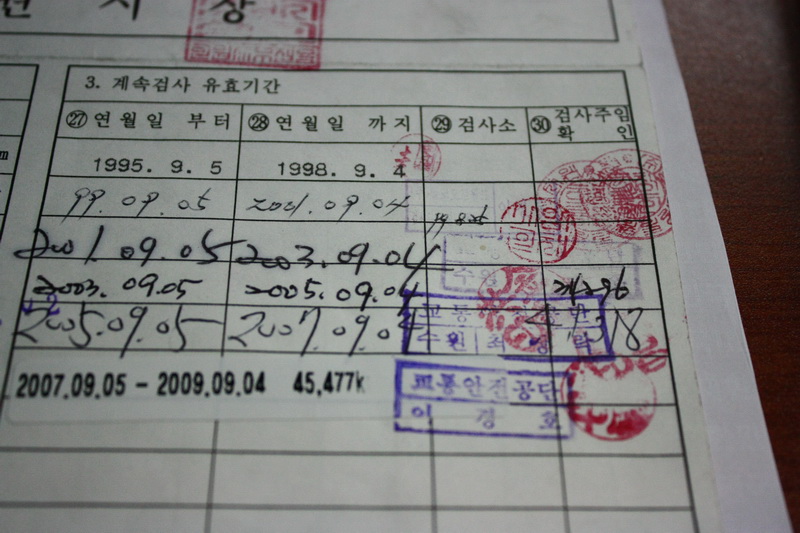 상
3. 계속검사 유효기간
㉗ 연월일 부터 ㉘ 연월일 까지 ㉙ 검사소 ㉚ 검사주임 확인
1995. 9. 5 1998. 9. 4
99. 09. 05 2001. 09. 04
2001. 09. 05 2003. 09. 04
2003. 09. 05 2005. 09. 04
2005. 09. 05 2007. 09. 04
수원
2007.09.05 - 2009.09.04 45,477k
교통안전공단
이 경 호